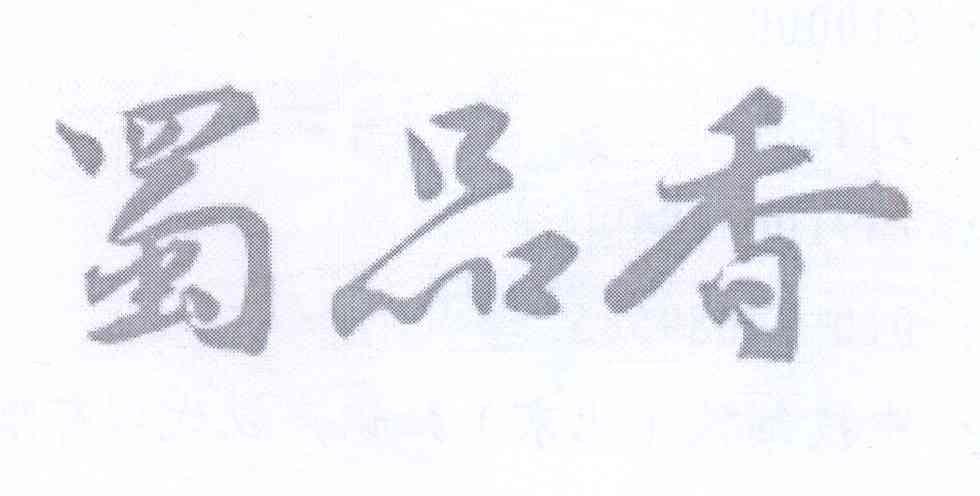 蜀品香